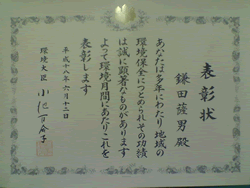 表彰状
鎌田薩男殿
あなたは多年にわたり地域の
環境保全につとめられその功績
は誠に顕著なものがあります
よって環境月間にあたりこれを
表彰します
平成十八年六月十二日
環境大臣 小池百合子